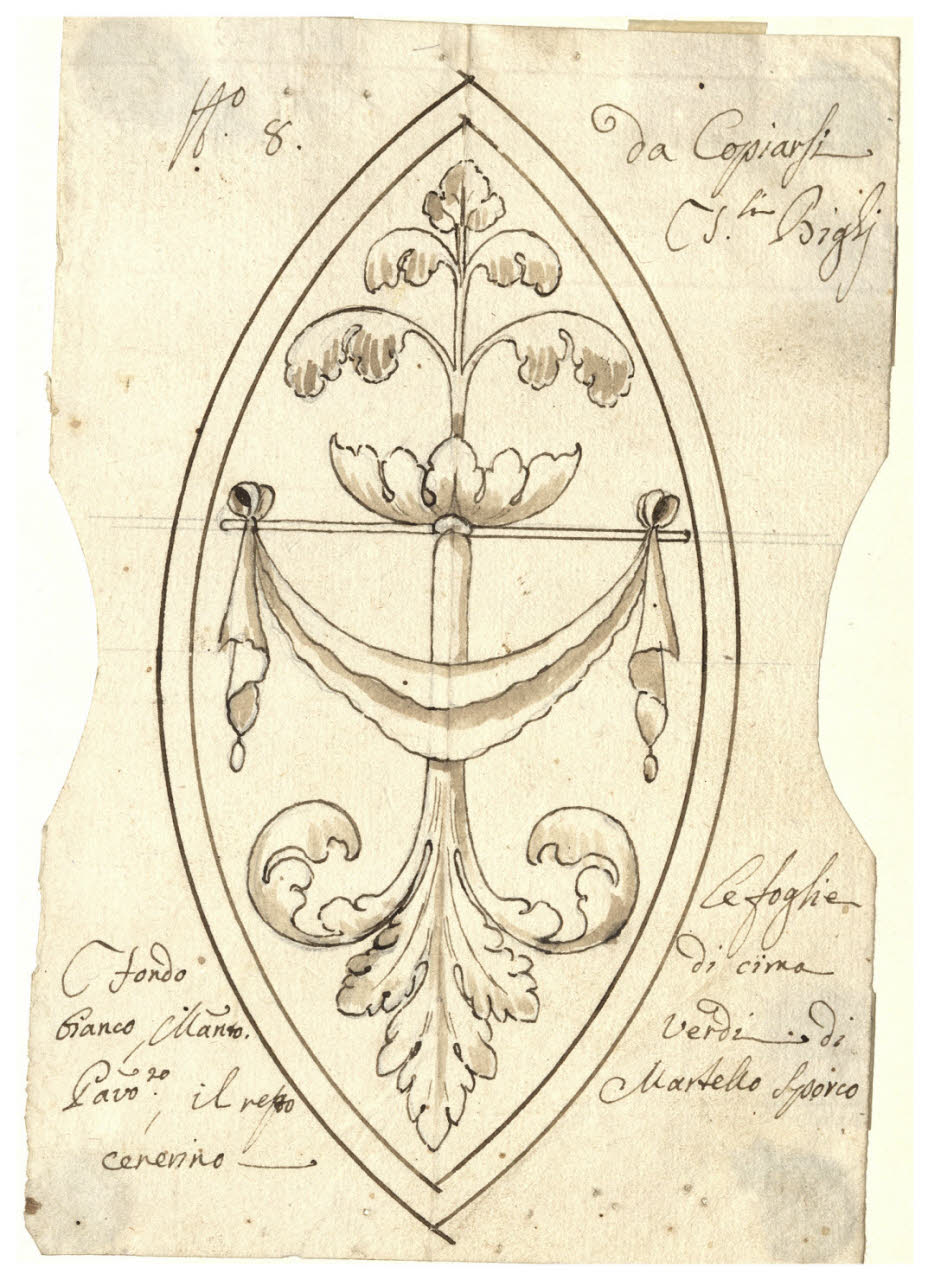 N.º 8.
da Copiarsi
Biglj
le foglie
di cima
verdi di
Martello Sporco
fondo
bianco, il
Pavo.zo, il resto
cenerino